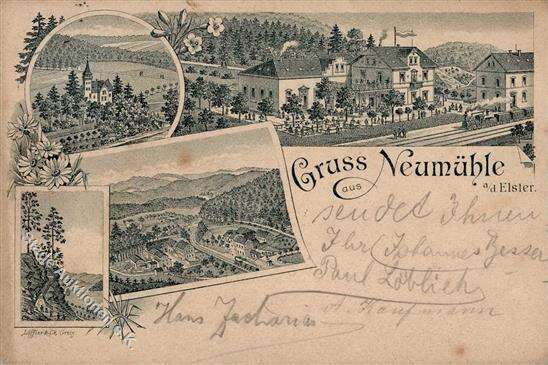 Gruss
aus
Neumühle
a/d Elster.
sendet Ihnen
Ihr Johannes Besser
Paul Löblich
A. Kaufmann
Hans Zacharias
Löffler & Co. Greiz